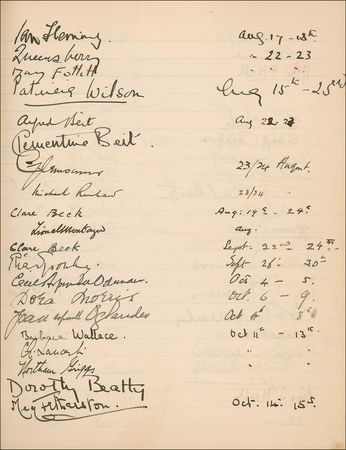 Ian Fleming. Aug 17 - 18th.
Queensberry " 22 - 23
Mary Follett
Patricia Wilson Aug 15th - 25th
Alfred Beit Aug 22 23
Clementine Beit.
23/24 August.
Michael Renshaw 23/24 "
Clare Beck Aug: 19th - 24th
Lionel Montague Aug.
Clare Beck Sept: 22nd 24th
Sept 26th 30th
Oct 4 - 5.
Dora Morris Oct. 6 - 9.
Joan Oct 8th
Barbara Wallace. Oct 11th - 13th.
" "
Northam Griggs " "
Dorothy Beatty
Oct. 14. 15th.